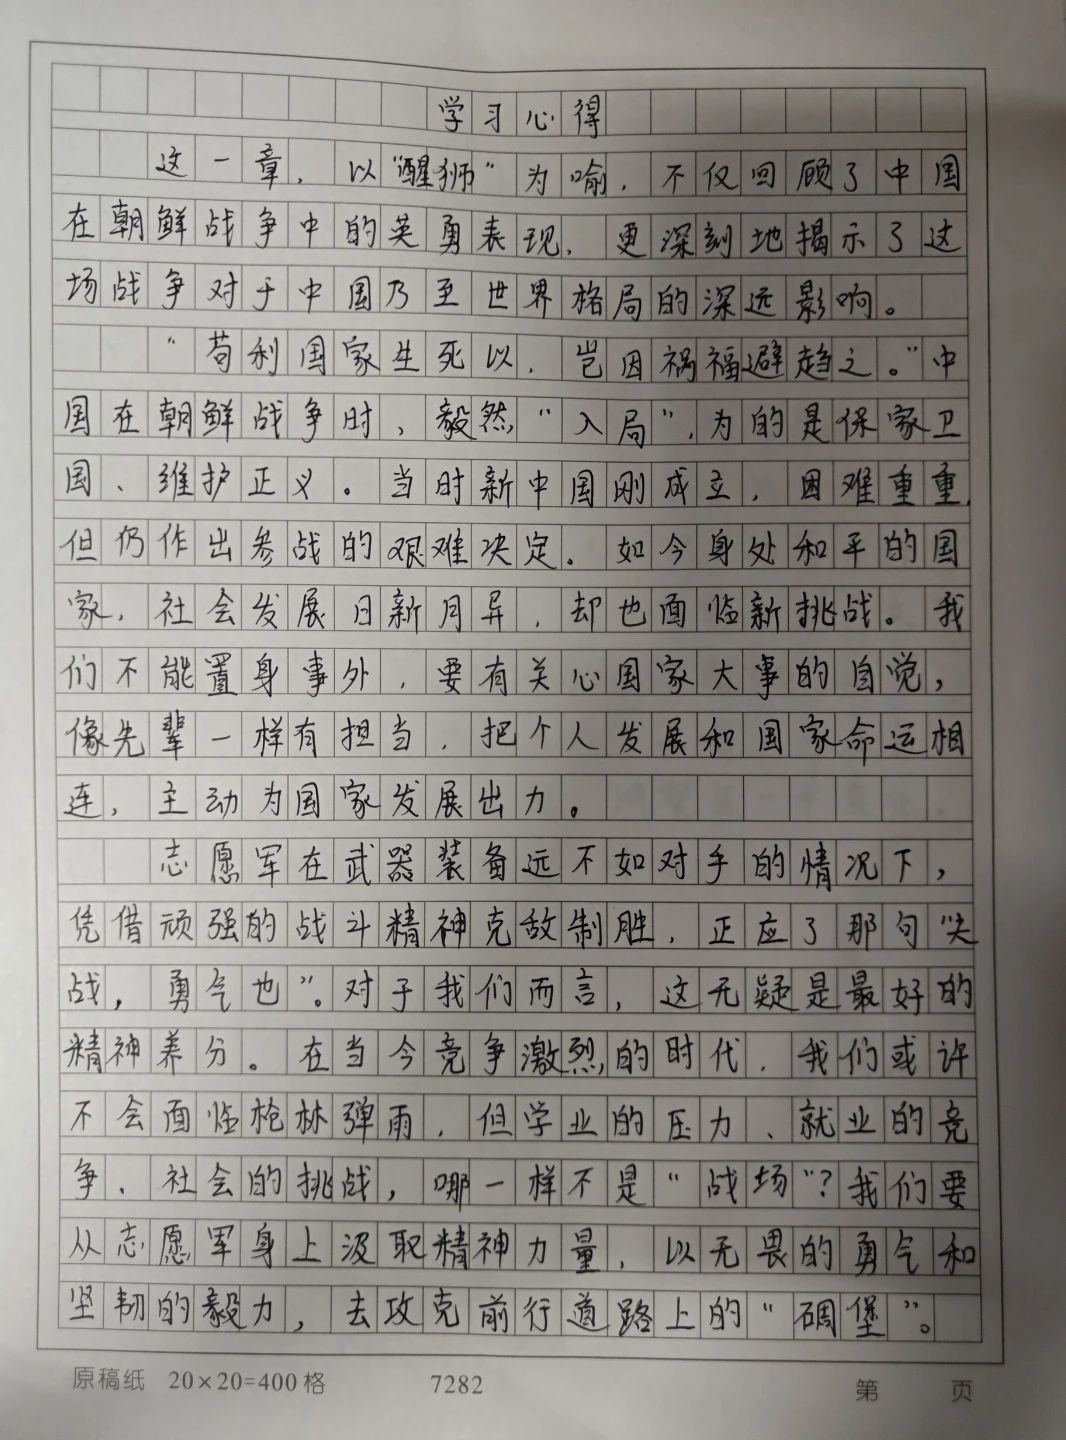 学习心得
这一章，以“醒狮”为喻，不仅回顾了中国
在朝鲜战争中的英勇表现，更深刻地揭示了这
场战争对于中国乃至世界格局的深远影响。
“苟利国家生死以，岂因祸福避趋之。”中
国在朝鲜战争时，毅然“入局”，为的是保家卫
国、维护正义。当时新中国刚成立，困难重重，
但仍作出参战的艰难决定。如今身处和平的国
家，社会发展日新月异，却也面临新挑战。我
们不能置身事外，要有关心国家大事的自觉，
像先辈一样有担当，把个人发展和国家命运相
连，主动为国家发展出力。
志愿军在武器装备远不如对手的情况下，
凭借顽强的战斗精神克敌制胜，正应了那句“夫
战，勇气也”。对于我们而言，这无疑是最好的
精神养分。在当今竞争激烈的时代，我们或许
不会面临枪林弹雨，但学业的压力、就业的竞
争、社会的挑战，哪一样不是“战场”？我们要
从志愿军身上汲取精神力量，以无畏的勇气和
坚韧的毅力，去攻克前行道路上的“碉堡”。
原稿纸 20×20=400格 7282 第 页